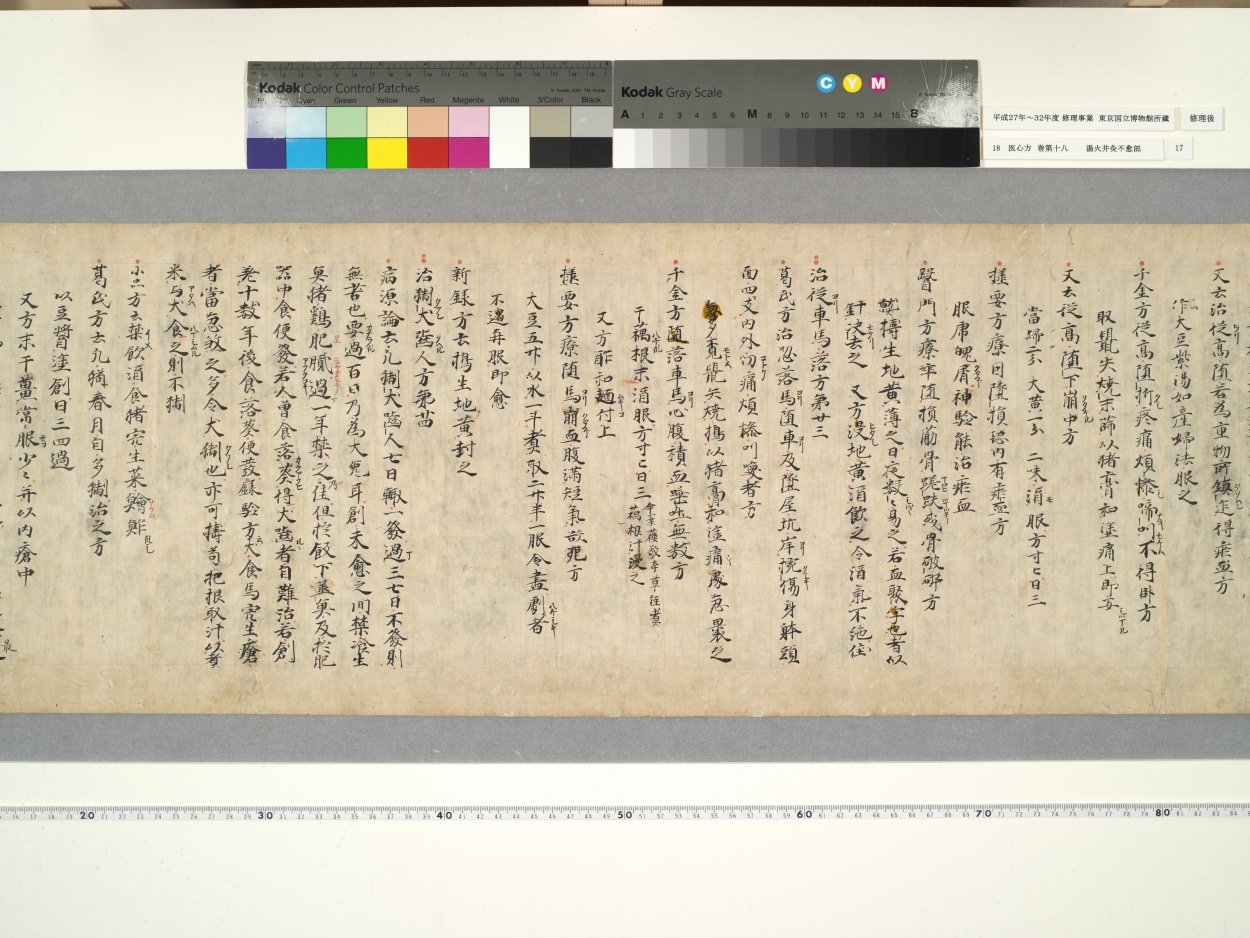 Kodak Color Control Patches
© Kodak, 2007 TM: Kodak
Cyan Green Yellow Red Magenta White 3/Color Black
Kodak Gray Scale
C Y M
A 1 2 3 4 5 6 M 8 9 10 11 12 13 14 15 B
平成27年〜32年度 修理事業 東京国立博物館所蔵
修理後
18 医心方 巻第十八 湯火并灸不愈部
17
又云治従高堕若為重物所鎮迮得瘀血方
作大豆紫湯如産婦法服之
千金方従高堕折疼痛煩惨啼叫不得卧方
取鼠矢焼末篩以猪膏和塗痛上即安
又云従高堕下崩中方
當歸二分 大黄一分 二味酒服方寸匕日三
極要方療日墜損恐内有瘀血方
服庸魄屑神験能治瘀血
醫門方療卒堕損筋骨蹉跌或骨破碎方
熟搗生地黄薄之日夜數易之若血聚 者以
針决去之 又方没地黄酒飲之令酒氣不絶佳
治従車馬落方第廿三
葛氏方治忽落馬堕車及墜屋坑岸捥傷身躰頭
面四支内外切痛煩 叫喚者方
急多覓鼠矢焼搗以猪膏和塗痛處急裹之
千金方堕落車馬心腹積血唾吐無數方
干藕根末酒服方寸匕日三
又方酢和麺付上
極要方療堕馬崩血腹滿短氣欲死方
大豆五升以水一斗煮取二升半一服令盡劇者
不過再服即愈
新録方云搗生地黄封之
治猘犬噬人方第廿四
病源論云凡猘犬噬人七日輙一發過三七日不發則
無苦也要過百日乃為大免耳創未愈之間禁冷生
魚猪鶏肥膩過一年禁之佳但於飯下蒸魚及於肥
器中食便發若人曽食落葵得犬噬者自難治若創
差十數年後食落葵便發録驗方犬食馬宍生瘡
者當急煞之多令犬猘也亦可搗苟杞根取汁以煮
米与犬食之則不猘
小品方云禁飲酒食猪宍生菜 雞
葛氏方云凡猶春月自多猘治之方
以豆醤塗創日三四過
又方末干薑常服少々并以内瘡中
20 30 40 50 60 70 80